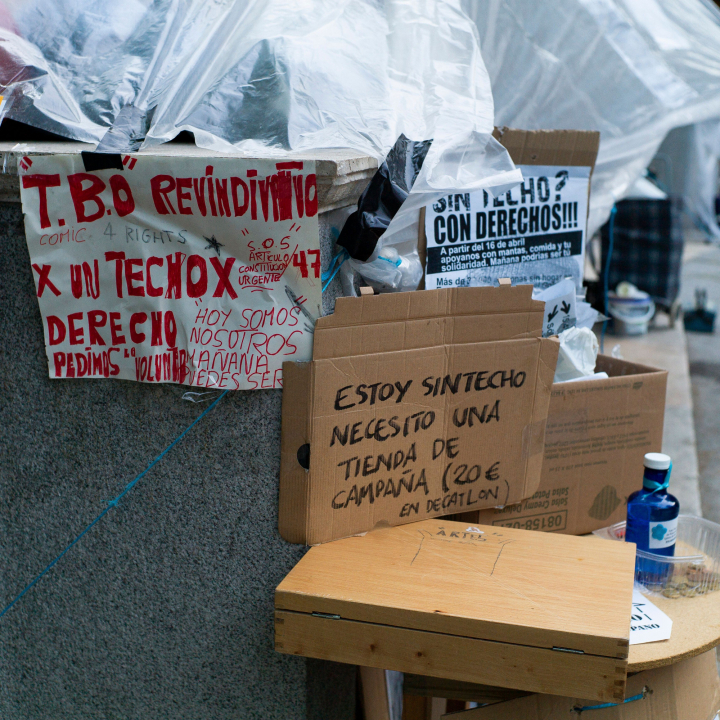 "T.B.O" REVINDIVITIVO
COMIC. 4 RIGHTS
X UN TECHO X
"S.O.S
ARTICULO 47
CONSTITUCION
URGENTE"
DERECHO
PEDIMOS "VOLUNT
"HOY SOMOS
NOSOTROS
MAÑANA
PUEDES SER
SIN TECHO?
CON DERECHOS!!!
A partir del 16 de abril
apoyanos con mantas, comida y tu
solidaridad. Mañana podrías ser tú
ESTOY SINTECHO
NECESITO UNA
TIENDA DE
CAMPAÑA (20€
EN DECATLON)
Salsa Creamy
08158-02
"ARTIS"
PANO